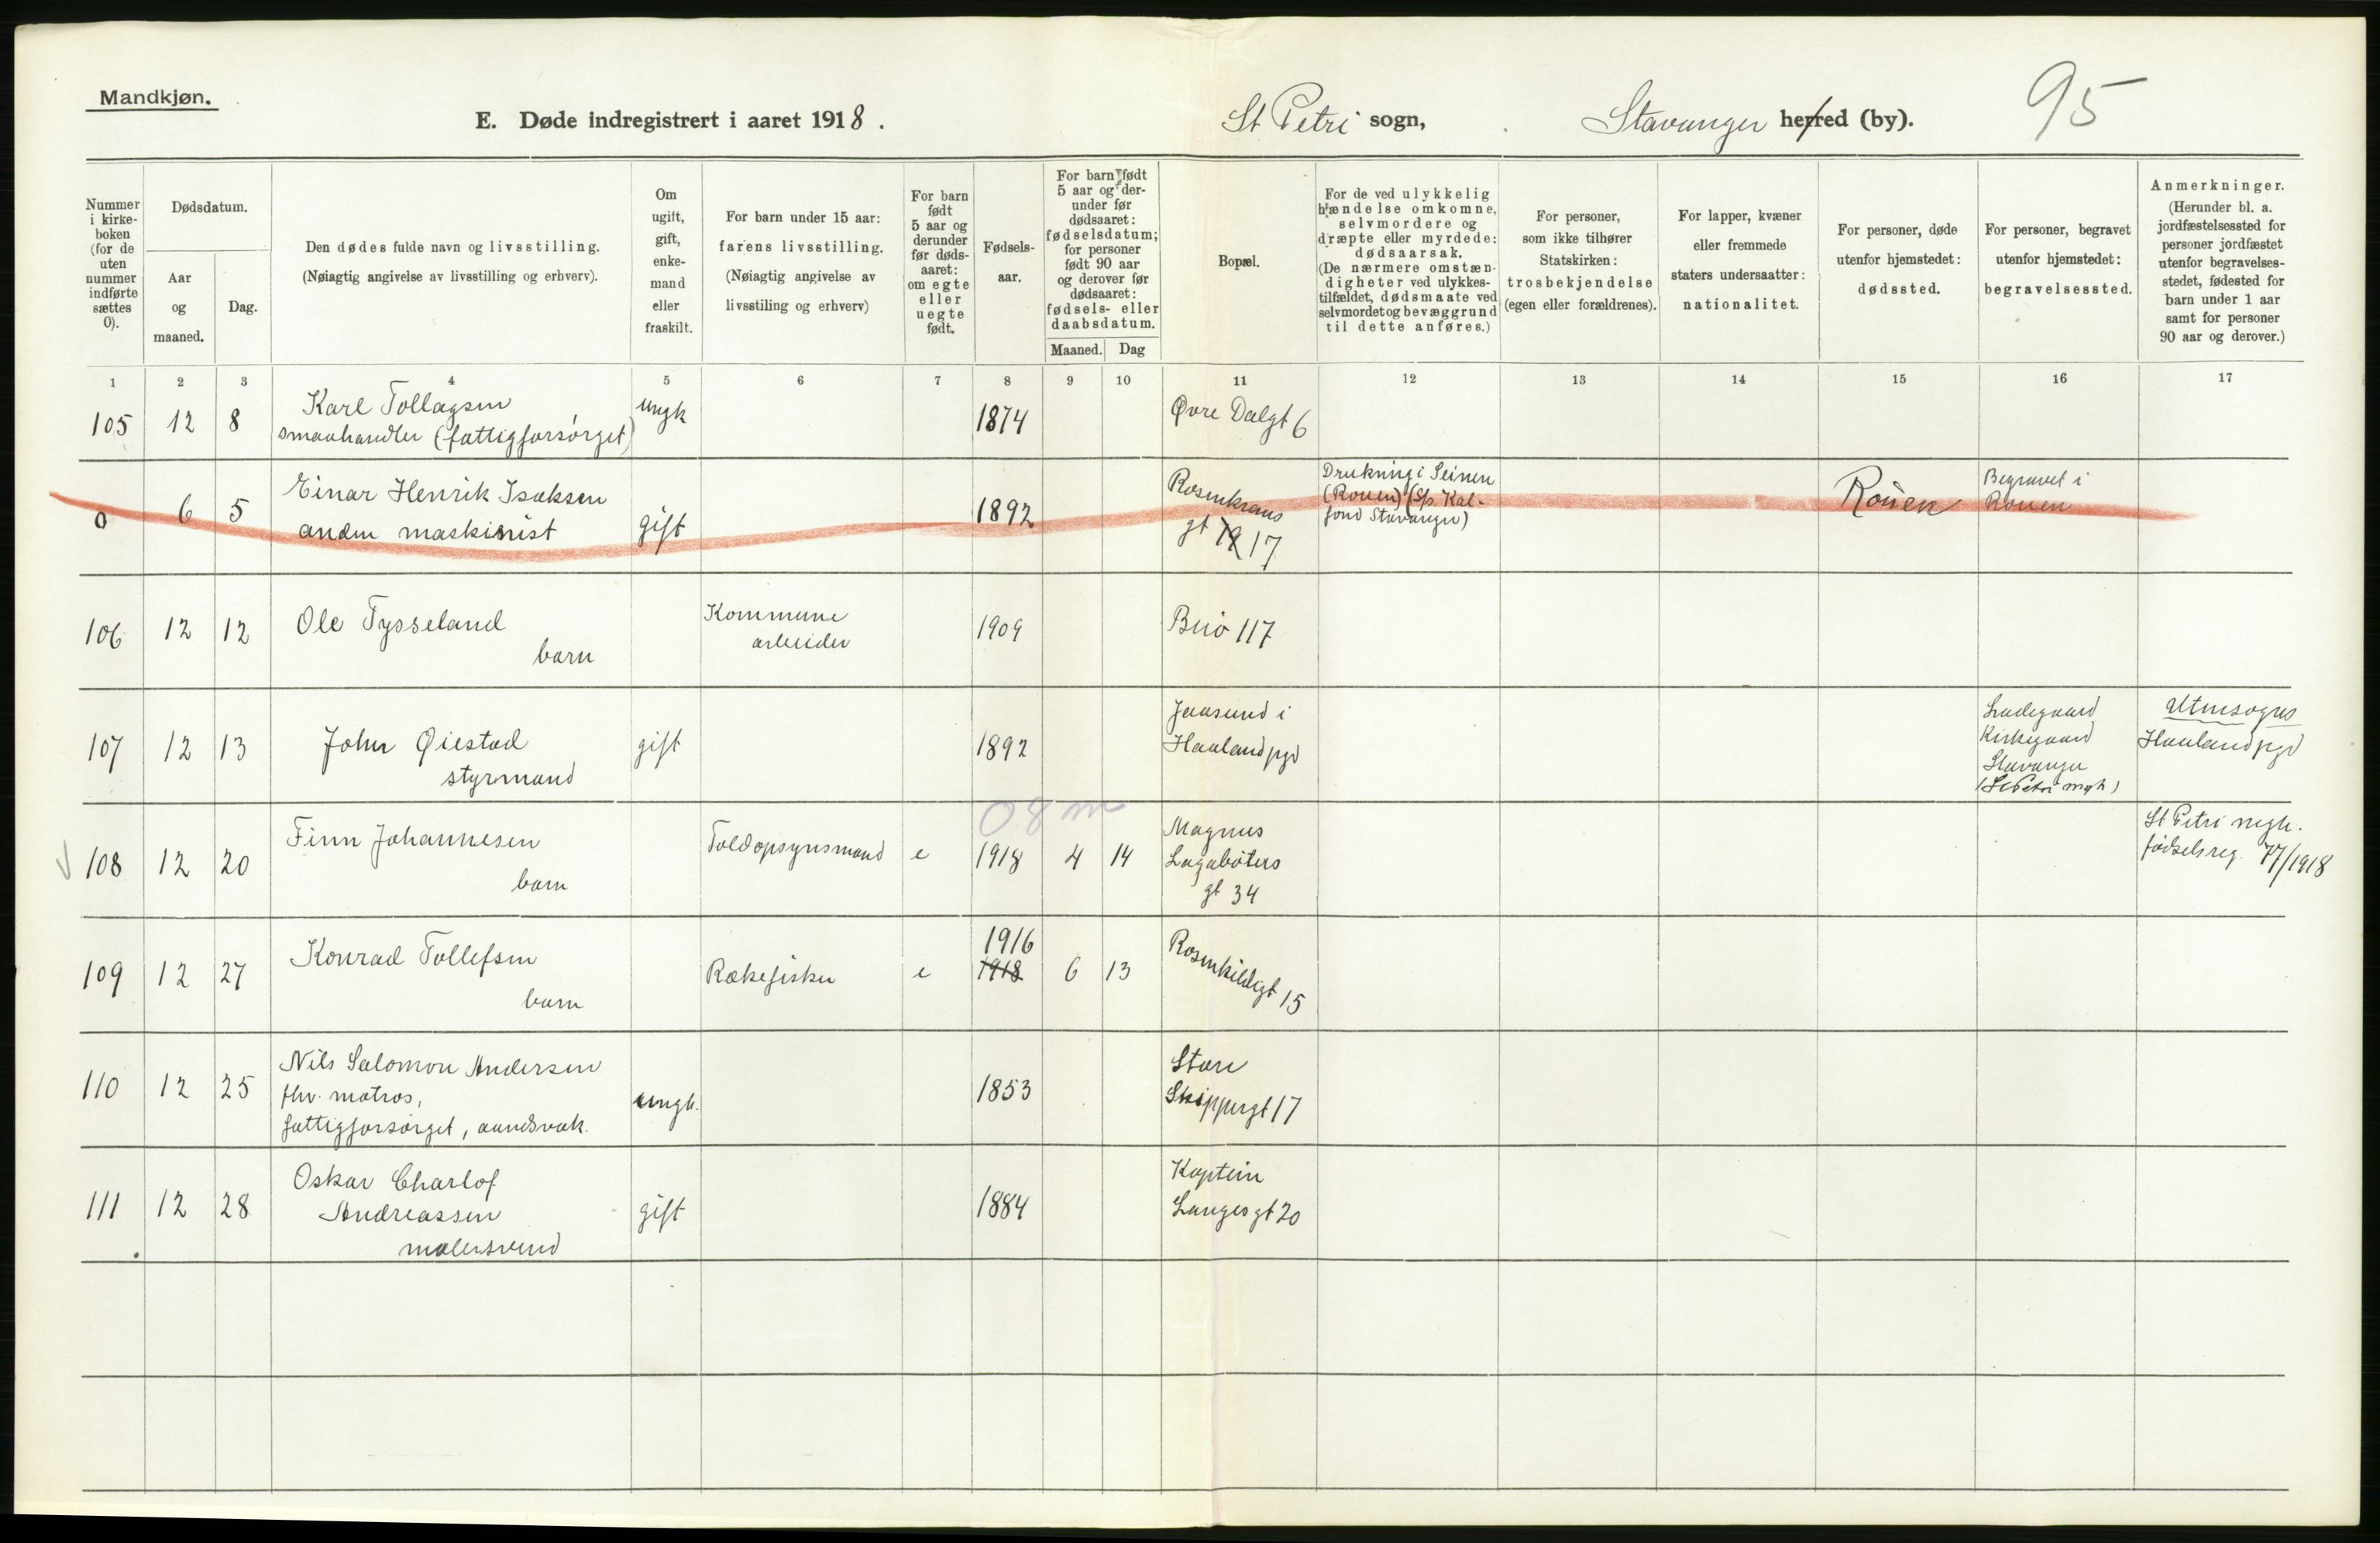 Mandkjøn.
E. Døde indregistrert i aaret 1918.
St Petri sogn,
Stavanger herred (by).
95
Nummer i kirke- boken (for de uten nummer indførte sættes 0).
Dødsdatum.
Aar og maaned.
Dag.
Den dødes fulde navn og livsstilling.
(Nøiagtig angivelse av livsstilling og erhverv).
Om ugift, gift, enke- mand eller fraskilt.
For barn under 15 aar: farens livsstilling.
(Nøiagtig angivelse av livsstiling og erhverv)
For barn født 5 aar og derunder før døds- aaret: om egte eller uegte født.
Fødsels- aar.
For barn født 5 aar og der- under før dødsaaret: fødselsdatum; for personer født 90 aar og derover før dødsaaret: fødsels- eller daabsdatum.
Maaned.
Dag
Bopæl.
For de ved ulykkelig hændelse omkomne, selvmordere og dræpte eller myrdede: dødsaarsak.
(De nærmere omstæn- digheter ved ulykkes- tilfældet, dødsmaate ved selvmordet og bevæggrund til dette anføres.)
For personer, som ikke tilhører Statskirken: trosbekjendelse (egen eller forældrenes).
For lapper, kvæner eller fremmede staters undersaatter: nationalitet.
For personer, døde utenfor hjemstedet: dødssted.
For personer, begravet utenfor hjemstedet: begravelsessted.
Anmerkninger.
(Herunder bl. a. jordfæstelsessted for personer jordfæstet utenfor begravelses- stedet, fødested for barn under 1 aar samt for personer 90 aar og derover.)
1 2 3 4 5 6 7 8 9 10 11 12 13 14 15 16 17
105 12 8 Karl Tollagsen
smaahandler (fattigforsørget)
ungk 1874 Øvre Dalgt 6
0 6 5 Einar Henrik Isaksen
anden maskinist
gift 1892
Rosenkrans
gt 19 17
Drukning i Seinen
(Rouen) (S/s Kal-
fond Stavanger)
Rouen
Begravet i
Rouen
106 12 12 Ole Tysseland
barn
Kommune
arbeider
1909 Buø 117
107 12 13 John Øiestad
styrmand
gift 1892
Jaasund i
Haaland pgd
Ladegaard
Kirkegaard
Stavanger
(St Petri mgh)
Utensogns
Haaland pgd
08 m
108 12 20 Finn Johannesen
barn
Toldopsynsmand e 1918 4 14
Magnus
Lagabøters
gt 34
St Petri mgh.
fødselsreg. 77/1918
109 12 27 Konrad Tollefsen
barn
Rækefisker e 1916
1918 6 13
Rosenkildigt 15
110 12 25 Nils Salomon Andersen
fhv. matros,
fattigforsørget, aandsvak.
ungk. 1853
Store
Skippergt 17
111 12 28 Oskar Charlof
Andreassen
malersvend
gift 1884
Kaptein
Langes gt 20